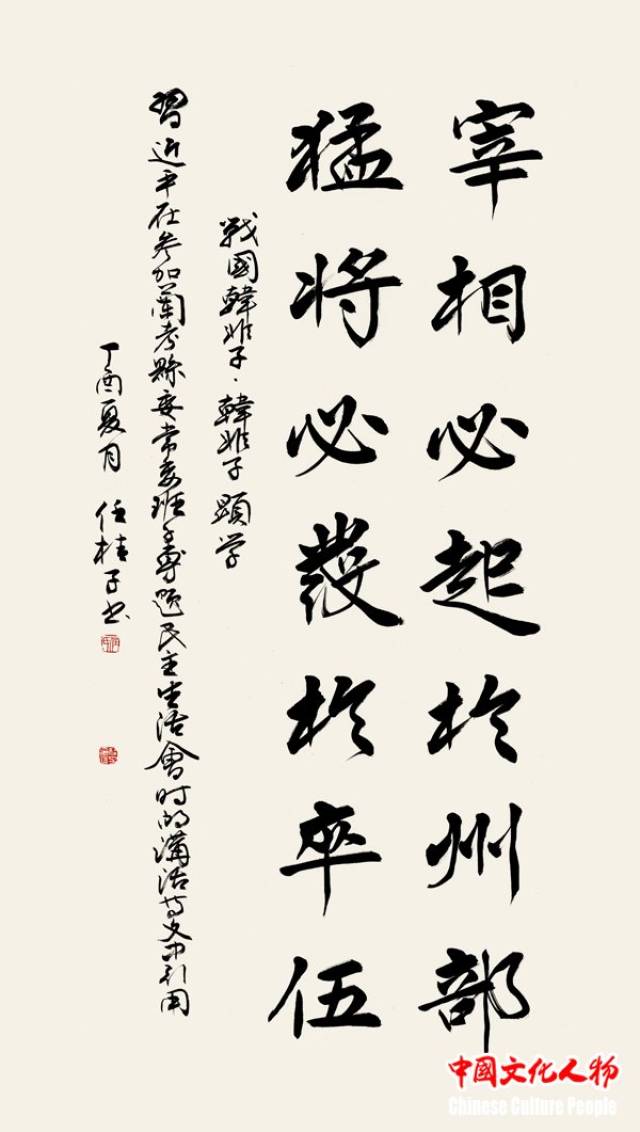 宰相必起於州部
猛将必發於卒伍
戰國韓非子·韓非子 顯学
習近平在参加蘭考縣委常委班子專題民主生活會时的講話等文中引用
丁酉夏月 任桂子书
中國文化人物
Chinese Culture People